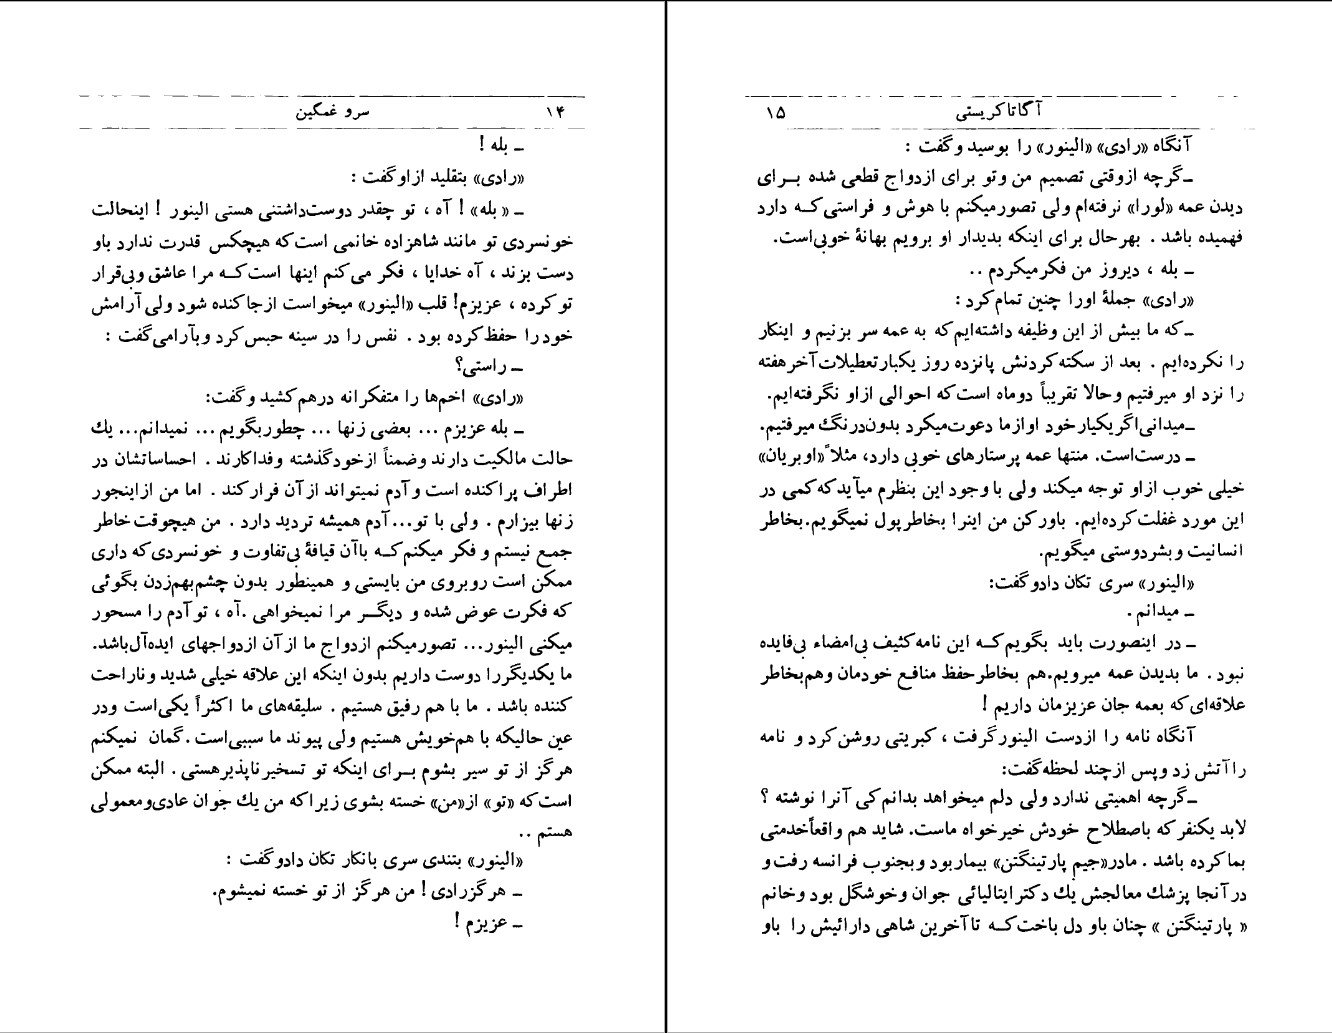 سرو غمگین ۱۴
ــ بله !
«رادی» بتقلید ازاوگفت :
ــ «بله» ! آه ، تو چقدر دوست‌داشتنی هستی الینور ! اینحالت
خونسردی تو مانند شاهزاده خانمی است‌که هیچکس قدرت ندارد باو
دست بزند ، آه خدایا ، فکر می‌کنم اینها است‌کـه مرا عاشق وبی‌قرار
تو کرده ، عزیزم! قلب «الینور» میخواست ازجاکنده شود ولی آرامش
خودرا حفظ‌کرده بود . نفس را در سینه حبس‌کرد وبآرامی‌گفت :
ــ راستی؟
«رادی» اخم‌ها را متفکرانه درهم‌کشید وگفت:
ــ بله عزیزم ... بعضی زنها ... چطوربگویم ... نمیدانم... یك
حالت مالکیت دارند وضمناً ازخودگذشته وفداکارند . احساساتشان در
اطراف پراکنده است وآدم نمیتواند ازآن فرارکند . اما من ازاینجور
زنها بیزارم . ولی با تو...آدم همیشه تردید دارد . من هیچوقت خاطر
جمع نیستم و فکر میکنم‌کـه باآن قیافهٔ بی‌تفاوت و خونسردی‌که داری
ممکن است روبروی من بایستی و همینطور بدون چشم‌بهم‌زدن بگوئی
که فکرت عوض شده و دیگـر مرا نمیخواهی .آه ، توآدم را مسحور
میکنی الینور... تصورمیکنم ازدواج ما ازآن ازدواجهای ایده‌آل‌باشد.
ما یکدیگررا دوست داریم بدون اینکه این علاقه خیلی شدید وناراحت
کننده باشد . ما با هم رفیق هستیم . سلیقه‌های ما اکثراً یکی‌است ودر
عین حالیکه با هم‌خویش هستیم ولی پیوند ما سببی‌است .گمان نمیکنم
هرگز از تو سیر بشوم بـرای اینکه تو تسخیرناپذیرهستی . البته ممکن
است‌که «تو» از«من» خسته بشوی زیراکه من یك جوان عادی‌ومعمولی
هستم ..
«الینور» بتندی سری بانکار تکان دادوگفت :
ــ هرگزرادی ! من هرگز از تو خسته نمیشوم.
ــ عزیزم !
آگاتاکریستی ۱۵
آنگاه «رادی» «الینور» را بوسید وگفت :
ــگرچه ازوقتی تصمیم من وتو برای ازدواج قطعی شده بـرای
دیدن عمه «لورا» نرفته‌ام ولی تصورمیکنم با هوش و فراستی‌کـه دارد
فهمیده باشد . بهرحال برای اینکه بدیدار او برویم بهانهٔ خوبی‌است.
ــ بله ، دیروز من فکرمیکردم ..
«رادی» جملهٔ اورا چنین تمام‌کرد :
ــکه ما بیش از این وظیفه داشته‌ایم‌که به عمه سر بزنیم و اینکار
را نکرده‌ایم . بعد از سکته‌کردنش پانزده روز یکبارتعطیلات‌آخرهفته
را نزد او میرفتیم وحالا تقریباً دوماه است‌که احوالی ازاو نگرفته‌ایم.
ــمیدانی‌اگریکبارخود اوازما دعوت‌میکرد بدون‌درنگ میرفتیم.
ــ درست‌است. منتها عمه پرستارهای خوبی دارد، مثلاً«اوبریان»
خیلی خوب ازاو توجه میکند ولی با وجود این بنظرم میآیدکه‌کمی در
این مورد غفلت‌کرده‌ایم. باورکن من اینرا بخاطرپول نمیگویم.بخاطر
انسانیت وبشردوستی میگویم.
«الینور» سری تکان دادوگفت:
ــ میدانم.
ــ در اینصورت باید بگویم‌کـه این نامه‌کثیف بی‌امضاء بی‌فایده
نبود . ما بدیدن عمه میرویم.هم بخاطرحفظ منافع خودمان وهم‌بخاطر
علاقه‌ای‌که بعمه جان عزیزمان داریم !
آنگاه نامه را ازدست الینورگرفت ، کبریتی روشن‌کرد و نامه
راآتش زد وپس ازچند لحظه‌گفت:
ــگرچه اهمیتی ندارد ولی دلم میخواهد بدانم‌کی آنرا نوشته ؟
لابد یکنفرکه باصطلاح خودش خیرخواه ماست. شاید هم واقعاًخدمتی
بماکرده باشد . مادر«جیم پارتینگتن» بیماربود وبجنوب فرانسه رفت‌و
درآنجا پزشك معالجش یك دکترایتالیائی جوان وخوشگل بود وخانم
« پارتینگتن » چنان باو دل باخت‌کـه تاآخرین شاهی دارائیش را باو